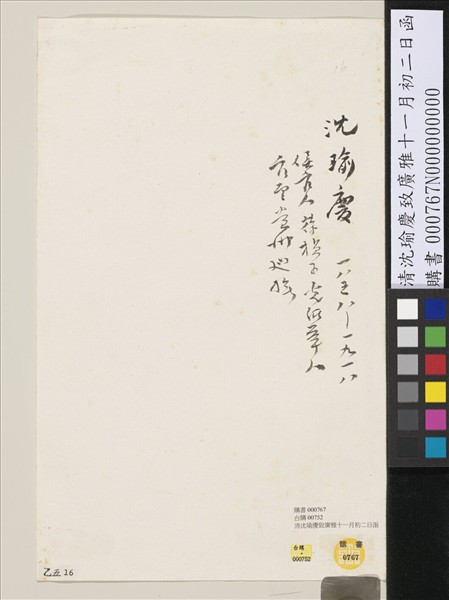 沈瑜慶 一八五八—一九一八
侯官人葆楨子光緒舉人
官至貴州巡撫
清沈瑜慶致廣雅十一月初二日函
購書 000767N000000000
購書 000767
台購 00752
清沈瑜慶致廣雅十一月初二日函
台購
000752
購書
0767
乙五 26